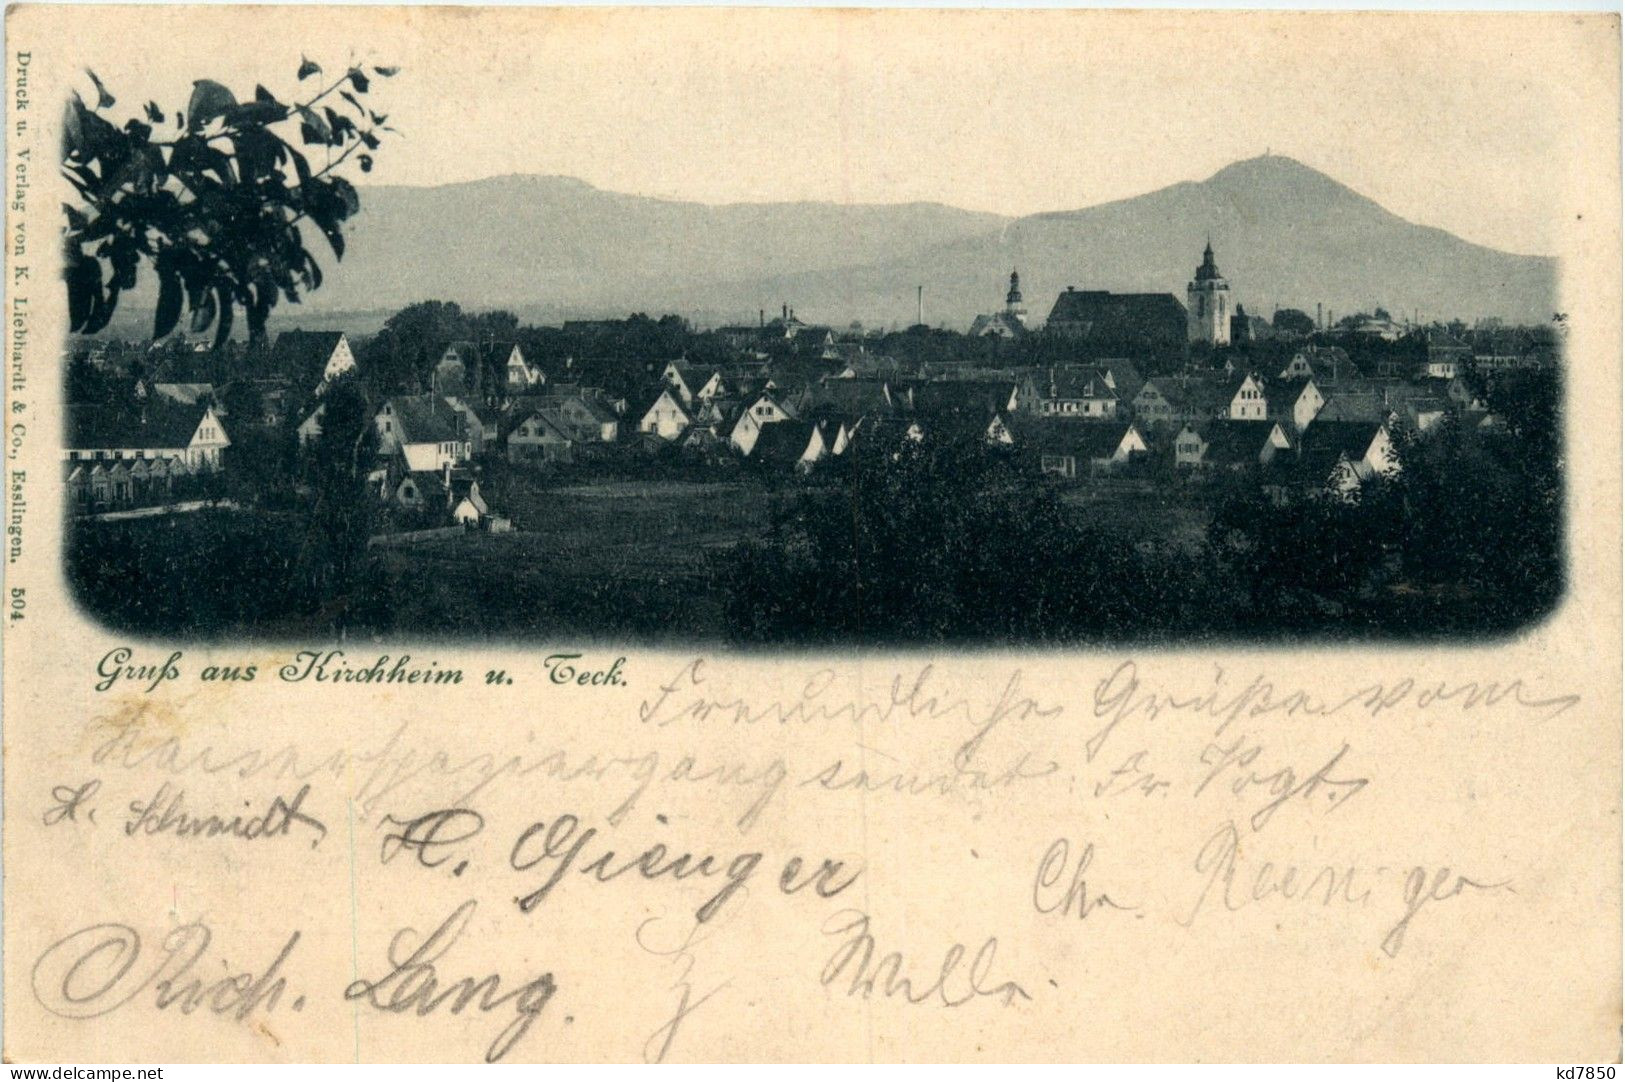 Druck u. Verlag von K. Liebhardt & Co., Esslingen. 504.
Gruß aus Kirchheim u. Teck.
Freundliche Grüße vom
Kaiserspaziergang sendet: Fr. Vogt.
H. Schmidt H. Gienger Chr. Reiniger.
Rich. Lang.
delcampe.net
kd7850